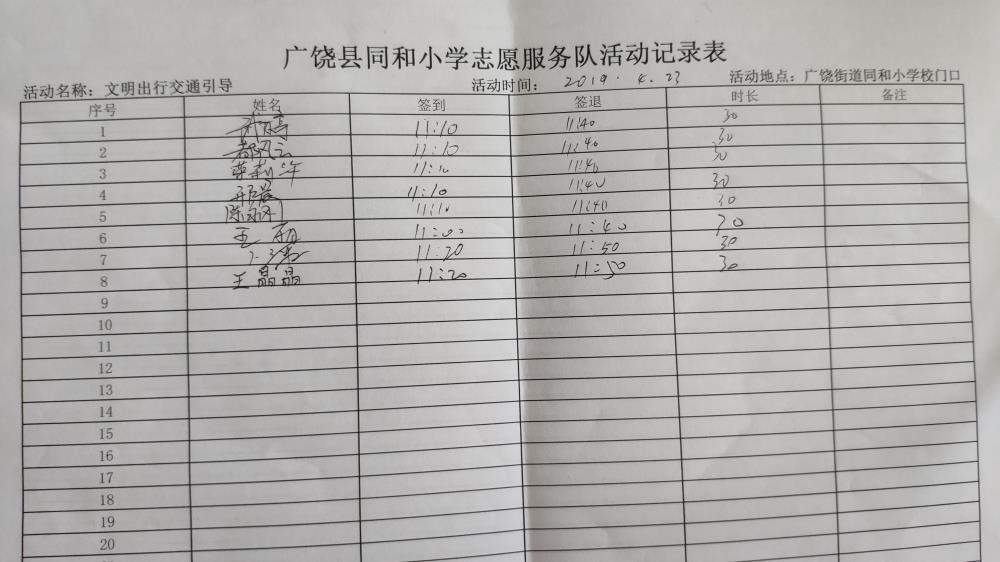 广饶县同和小学志愿服务队活动记录表
活动名称：文明出行交通引导 活动时间： 2019.4.23 活动地点：广饶街道同和小学校门口
序号 姓名 签到 签退 时长 备注
1 11:10 11:40 30
2 11:10 11:40 30
3 11:10 11:40 30
4 11:10 11:40 30
5 11:10 11:40 30
6 11:00 11:40
7 11:20 11:50 30
8 王晶晶 11:20 11:50 30
9
10
11
12
13
14
15
16
17
18
19
20